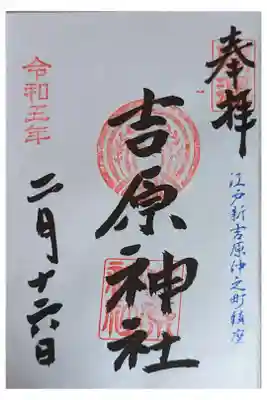 奉拝
江戸新吉原仲之町鎮座
吉原神社
令和三年
二月十六日